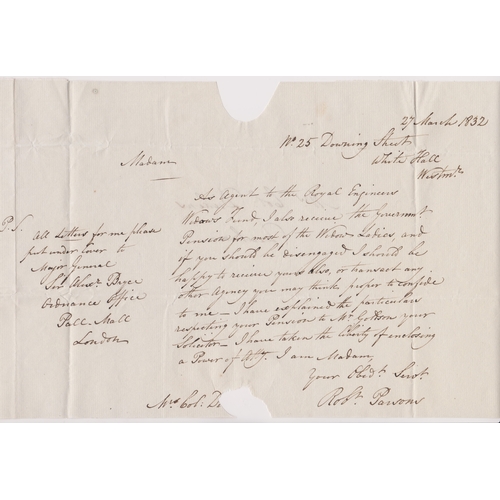 27 March 1832
No 25 Downing Street
White Hall
Westmr.
Madam
As Agent to the Royal Engineers
Widows Fund, I also receive the Governmt
Pension for most of the Widow Ladies and
if you should be disengaged I should be
happy to receive yours also, or transact any
other Agency you may think proper to confide
to me – I have explained the particulars
respecting your Pension to Mr. your
Solicitor – I have taken the liberty of enclosing
a Power of Atty. I am Madam,
Your Obedt. Servt.
Robt. Parsons
Mrs Col: D
P.S.
All Letters for me please
put under cover to
Major General
Sir Alexr. Bryce
Ordnance Office
Pall Mall
London